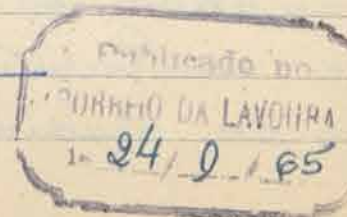 Publicado no
CORREIO DA LAVOURA
24/9/65